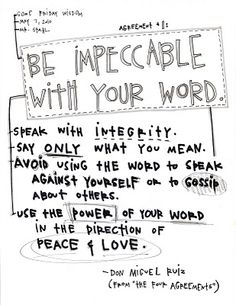 SOME FRIDAY WISDOM
MAY 7, 2010
AGREEMENT #1:
BE IMPECCABLE
WITH YOUR WORD.
- SPEAK WITH INTEGRITY.
- SAY ONLY WHAT YOU MEAN.
- AVOID USING THE WORD TO SPEAK
AGAINST YOURSELF OR TO GOSSIP
ABOUT OTHERS.
- USE THE POWER OF YOUR WORD
IN THE DIRECTION OF
PEACE & LOVE.
- DON MIGUEL RUIZ
(FROM "THE FOUR AGREEMENTS")